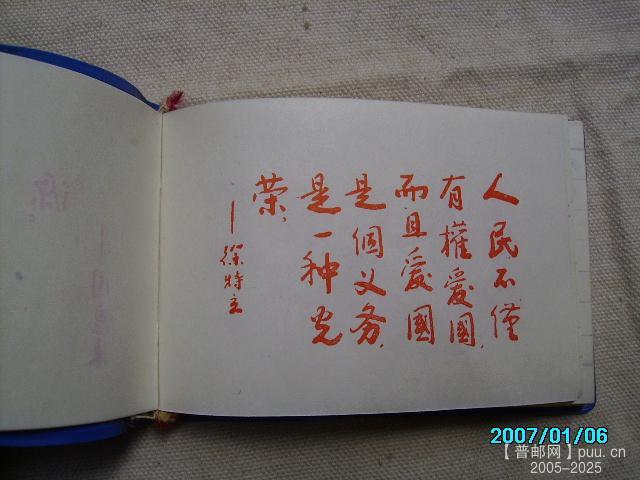 人民不僅
有權愛國,
而且愛國
是個义务,
是一种光
荣,
—徐特立
2007/01/06
【普邮网】puu.cn
2005-2025